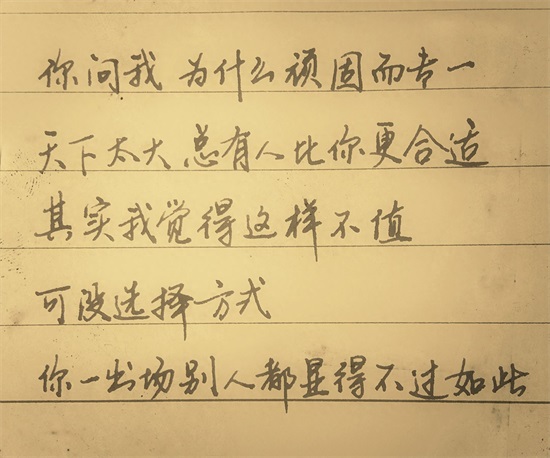 你问我 为什么顽固而专一
天下太大总有人比你更合适
其实我觉得这样不值
可没选择方式
你一出场别人都显得不过如此